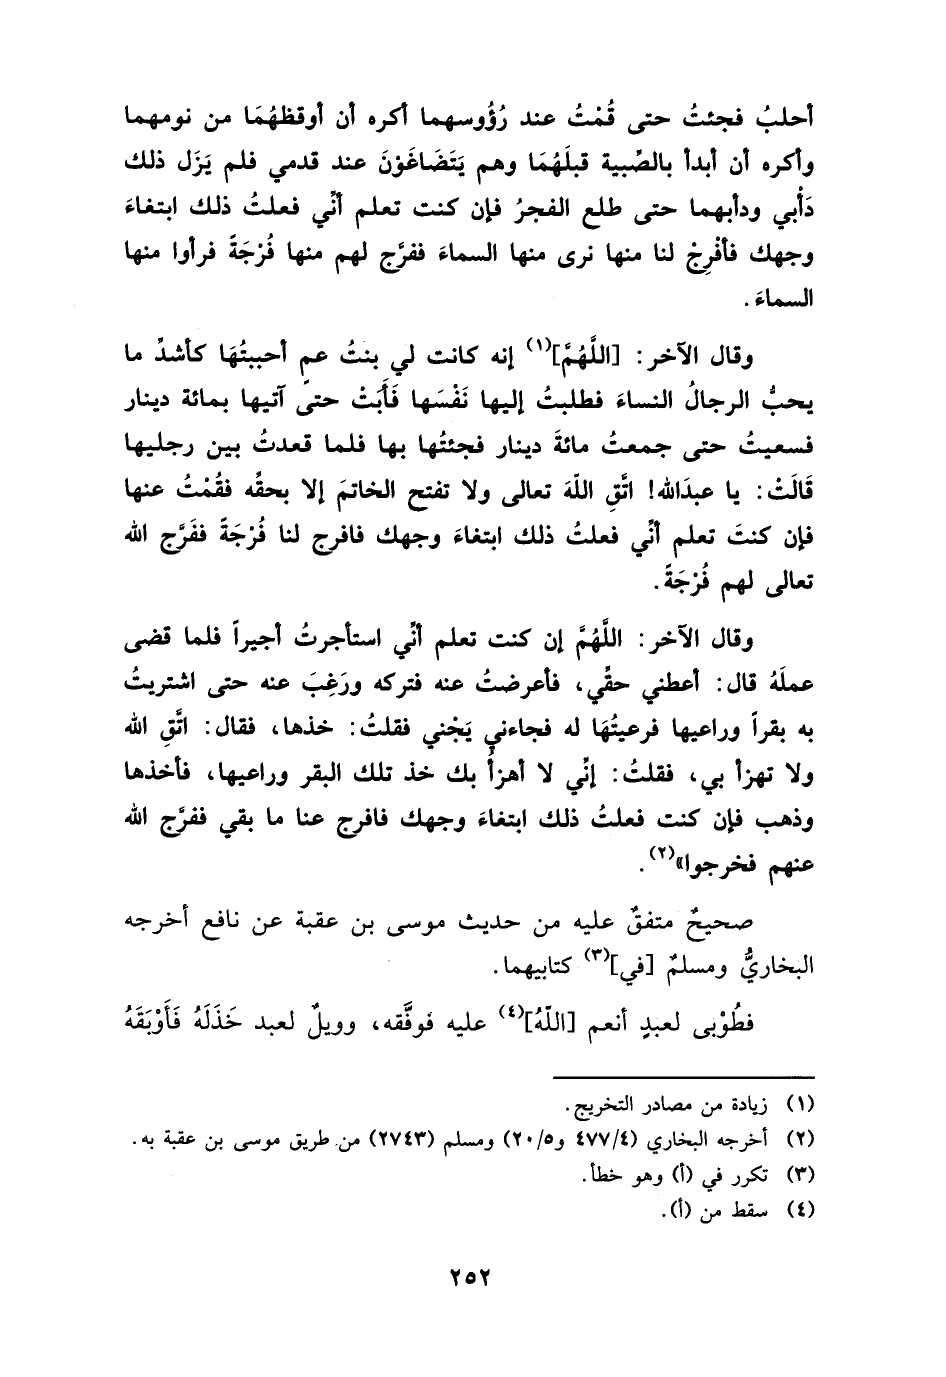 أحلبُ فجئتُ حتى قُمْتُ عند رُؤُوسهما أكره أن أوقظهُمَا من نومهما
وأكره أن أبدأ بالصِّبية قبلَهُمَا وهم يَتَضَاغَوْنَ عند قدمي فلم يَزَل ذلك
دَأْبي ودأبهما حتى طلع الفجرُ فإن كنت تعلم أنِّي فعلتُ ذلك ابتغاءَ
وجهك فأفْرِجْ لنا منها نرى منها السماءَ ففرَّج لهم منها فُرْجَةً فرأوا منها
السماءَ.
وقال الآخر: [اللَّهُمَّ](١) إنه كانت لي بنتُ عمٍ أحببتُهَا كأشدِّ ما
يحبُّ الرجالُ النساءَ فطلبتُ إليها نَفْسَها فَأَبَتْ حتىّ آتيها بمائة دينار
فسعيتُ حتى جمعتُ مائةَ دينار فجئتُها بها فلما قعدتُ بين رجليها
قَالَتْ: يا عبدَالله! اتَّقِ اللّهَ تعالى ولا تفتح الخاتمَ إلا بحقِّه فقُمْتُ عنها
فإن كنتَ تعلم أنِّي فعلتُ ذلك ابتغاءَ وجهك فافرج لنا فُرْجَةً ففَرَّج الله
تعالى لهم فُرْجَةً.
وقال الآخر: اللَّهُمَّ إن كنت تعلم أنِّي استأجرتُ أجيراً فلما قضى
عملَهُ قال: أعطني حقِّي، فأعرضتُ عنه فتركه ورَغِبَ عنه حتى اشتريتُ
به بقراً وراعيها فرعيتُهَا له فجاءني يَجْني فقلتُ: خذها، فقال: اتَّقِ الله
ولا تهزأ بي، فقلتُ: إنِّي لا أهزأُ بك خذ تلك البقر وراعيها، فأخذها
وذهب فإن كنت فعلتُ ذلك ابتغاءَ وجهك فافرج عنا ما بقي ففرَّج الله
عنهم فخرجوا»(٢).
صحيحٌ متفقٌ عليه من حديث موسى بن عقبة عن نافع أخرجه
البخاريُّ ومسلمٌ [في](٣) كتابيهما.
فطُوْبى لعبدٍ أنعم [اللّهُ](٤) عليه فوفَّقه، وويلٌ لعبد خَذَلَهُ فَأَوْبَقَهُ
(١) زيادة من مصادر التخريج.
(٢) أخرجه البخاري (٤/٤٧٧ و٥/٢٠) ومسلم (٢٧٤٣) من طريق موسى بن عقبة به.
(٣) تكرر في (أ) وهو خطأ.
(٤) سقط من (أ).
٢٥٢